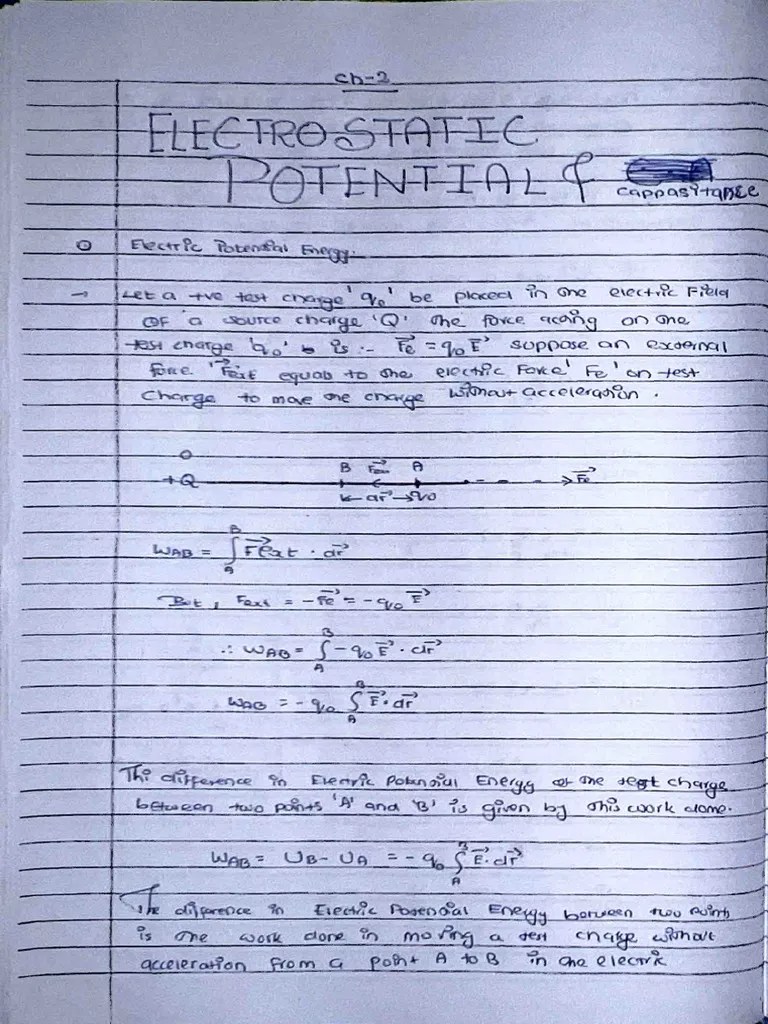 Ch-2
ELECTROSTATIC
POTENTIAL &
Cappasitance
O Electric Potential Energy.
→ Let a +ve test charge 'q₀' be placed in the electric Field
OF a source charge 'Q' the force acting on the
test charge 'q₀' is :- F⃗e = q₀ E⃗ suppose an external
force 'F⃗ext equals to the electric Force 'Fe' on test
Charge to move the charge without acceleration.
O B F⃗ext A
+Q F⃗e
dr⃗ q₀
WAB = ∫ F⃗ext · dr⃗
B
A
But, Fext = -F⃗e = -q₀ E⃗
∴ WAB = ∫ - q₀ E⃗ · dr⃗
B
A
WAB = - q₀ ∫ E⃗ · dr⃗
B
A
Thi difference in Electric Potential Energy of the test charge
between two points 'A' and 'B' is given by this work done.
WAB = UB - UA = - q₀ ∫ E⃗ · dr⃗
B
A
The difference in Electric Potential Energy between two points
is the work done in moving a test charge without
acceleration from a point A to B in the electric